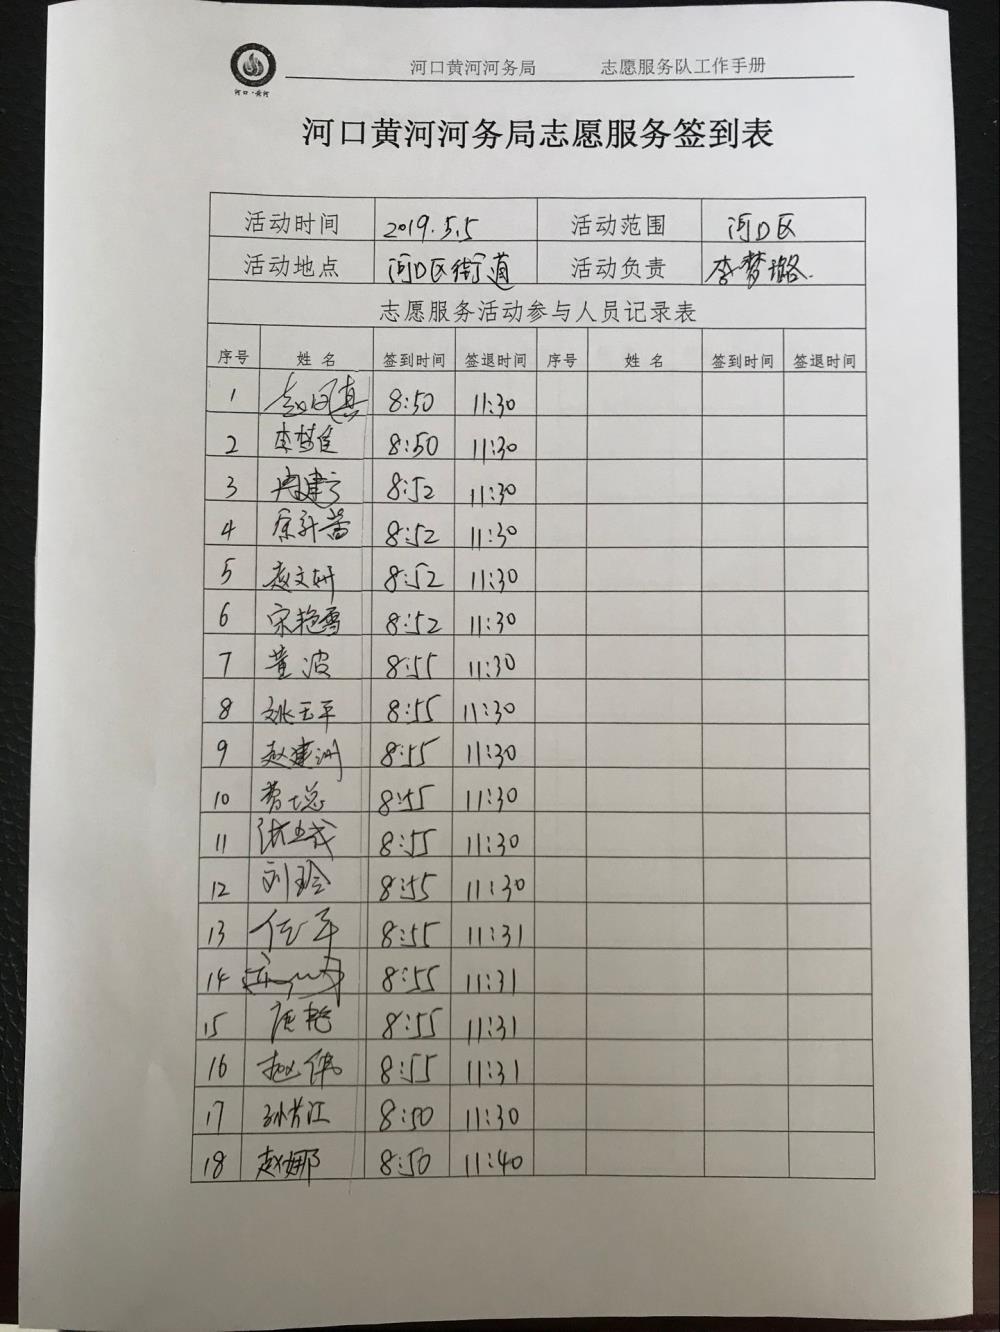 河口·黄河
河口黄河河务局 志愿服务队工作手册
河口黄河河务局志愿服务签到表
活动时间 2019.5.5 活动范围 河口区
活动地点 河口区街道 活动负责 李梦璐
志愿服务活动参与人员记录表
序号 姓名 签到时间 签退时间 序号 姓名 签到时间 签退时间
1 8:50 11:30
2 8:50 11:30
3 8:52 11:30
4 8:52 11:30
5 赵文妍 8:52 11:30
6 宋艳雪 8:52 11:30
7 董波 8:55 11:30
8 姚玉平 8:55 11:30
9 赵建洲 8:55 11:30
10 8:55 11:30
11 8:55 11:30
12 刘玲 8:55 11:30
13 任平 8:55 11:31
14 8:55 11:31
15 8:55 11:31
16 赵伟 8:55 11:31
17 孙芳江 8:50 11:30
18 赵娜 8:50 11:40